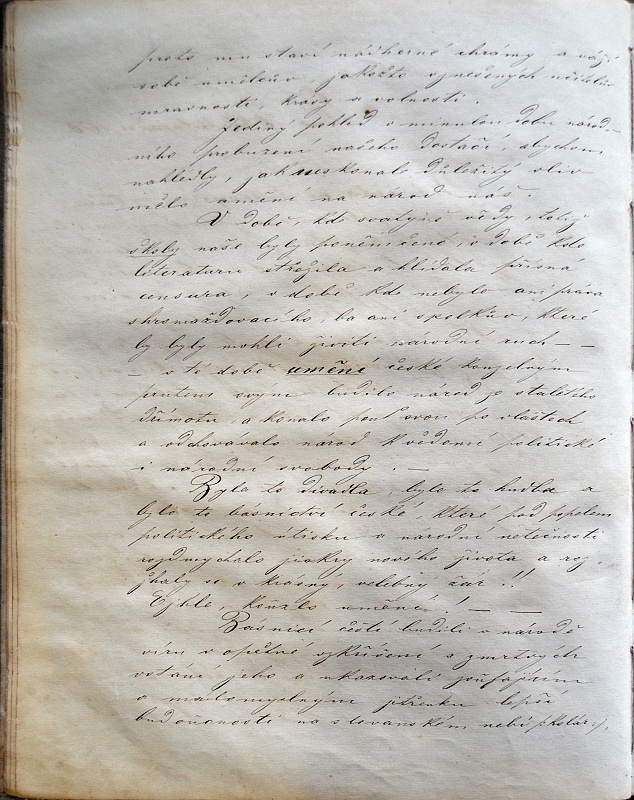 proto mu staví nádherné chrámy a váží
sobě umělcův, jakožto vznešených učitelův
mravnosti, krásy a volnosti.
Jediný pohled v minulou dobu národ-
ního probuzení našeho dostačí, abychom
nahlédly, jak neskonale důležitý vliv
mělo umění na národ náš.
V době, kde svatyně vědy, totiž
školy naše byly poněmčené, v době kde
literaturu strážila a hlídala přísná
censura, v době kde nebylo ani práva
shromažďovacího, ba ani spolkův, které
by byly mohli živiti národní ruch - -
- v té době umění české kouzelným
prutem svým budilo národ ze staletého
dřímotu, a konalo pouť svou po vlastech
a odchovávalo národ k vědomí politické
i národní svobody. -
Bylo to divadlo, bylo to hudba a
bylo to básnictví české, které pod popelem
politického útisku a národní netečnosti
rozdmychalo jiskry nového života a roz-
žhaly se v krásný, velebný žár!!
Ejhle, kouzlo umění! - -
Básníci čeští budili v národě
víru v opětné vzkříšení z mrtvých
vstání jeho a ukazovali zoufajícím
a malomyslným jitřenku lepší
budoucnosti na slovanském nebi (Kolár),